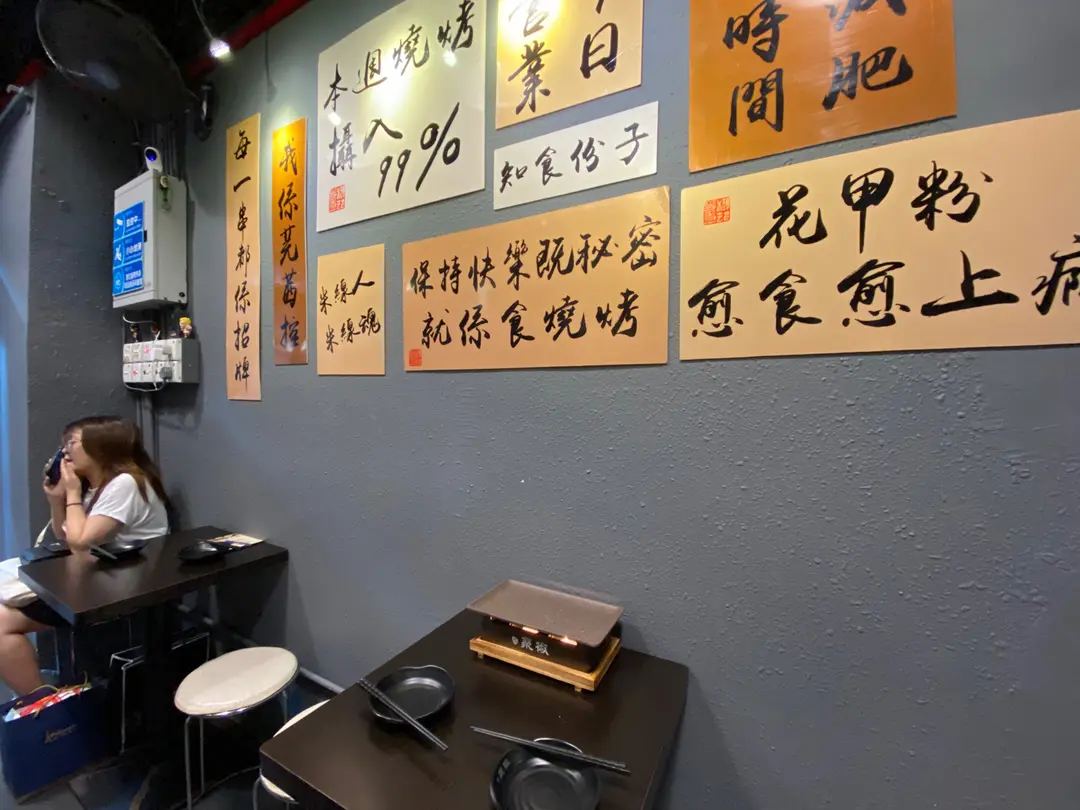 每一串都係招牌
我係芫茜控
本週燒烤
攝入
99%
日
營業
知食份子
時間
減肥
米線人
米線魂
保持快樂既秘密
就係食燒烤
花甲粉
愈食愈上